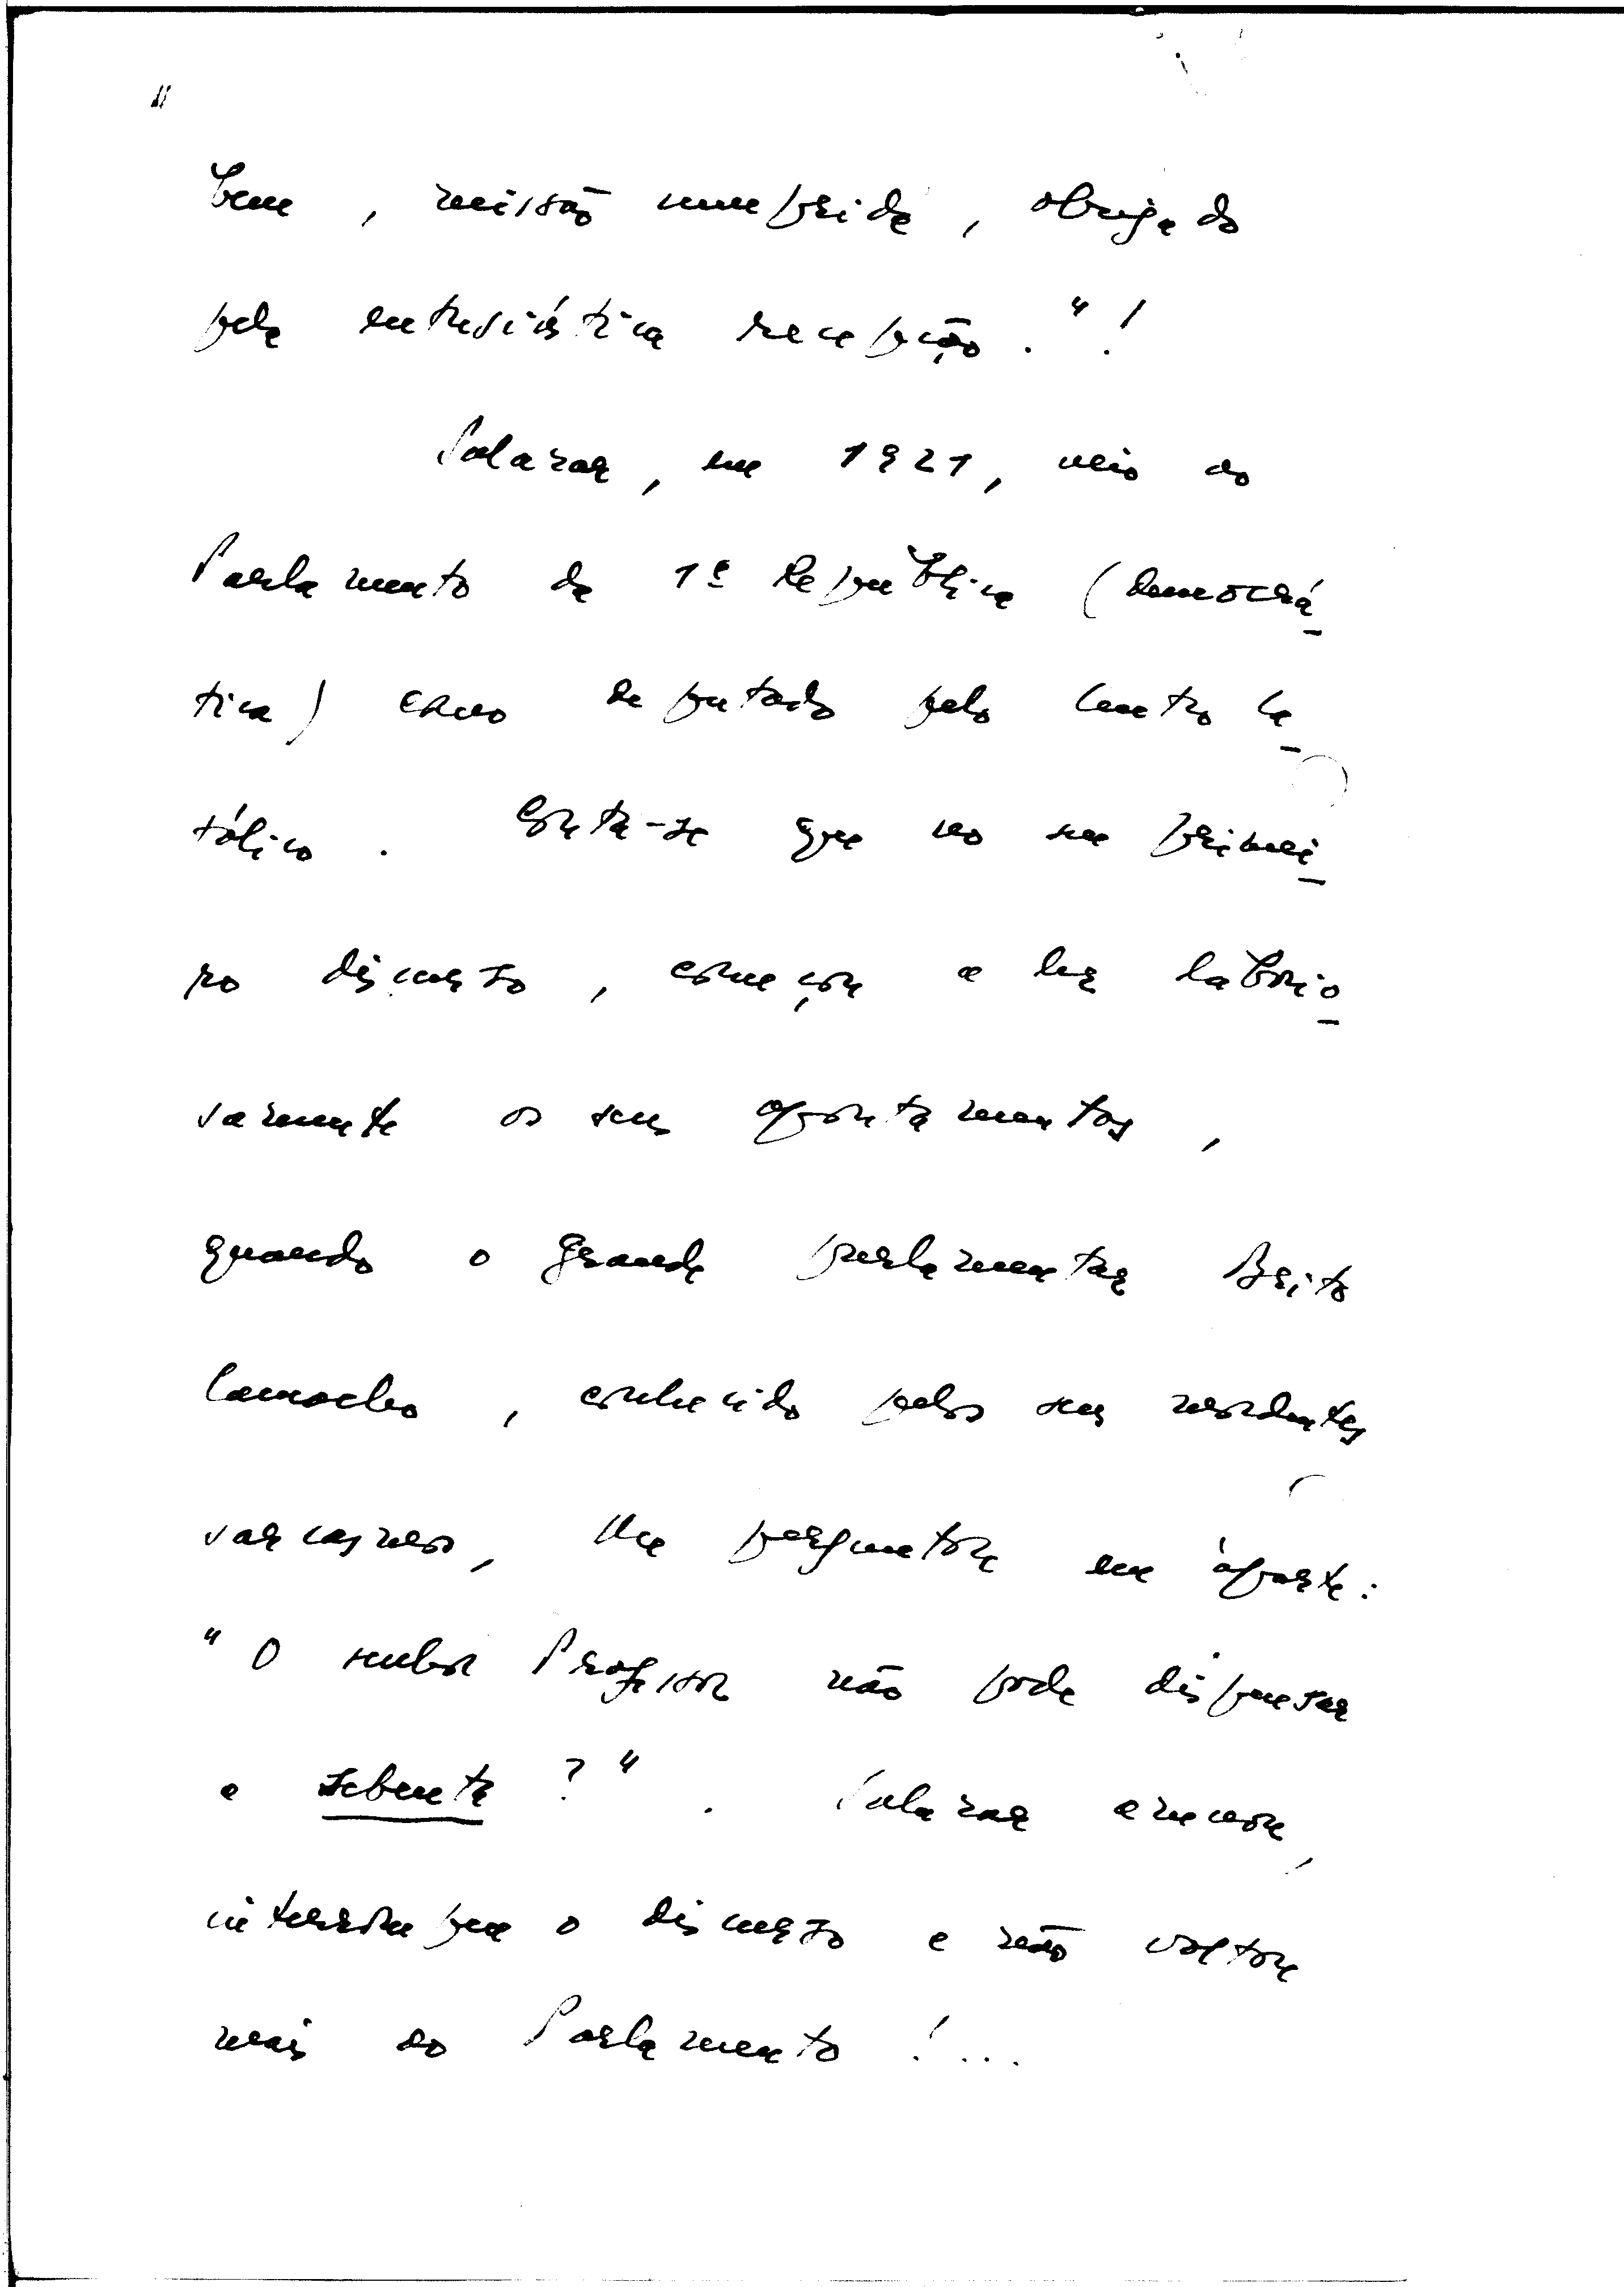 bem, missão cumprida, obrigado
pela entusiástica recepção."!
Salazar, em 1921, veio ao
Parlamento da 1ª República (democrá-
tica) como deputado pelo Centro Ca-
tólico. Conta-se que no seu primei-
ro discurso, começou a ler laborio-
samente os seus apontamentos,
quando o grande parlamentar Brito
Camacho, conhecido pelos seus mordentes
sarcasmos, lhe perguntou em àparte:
"O senhor Professor não pode dispensar
a sebenta?". Salazar amuou,
interrompeu o discurso e não voltou
mais ao Parlamento!...